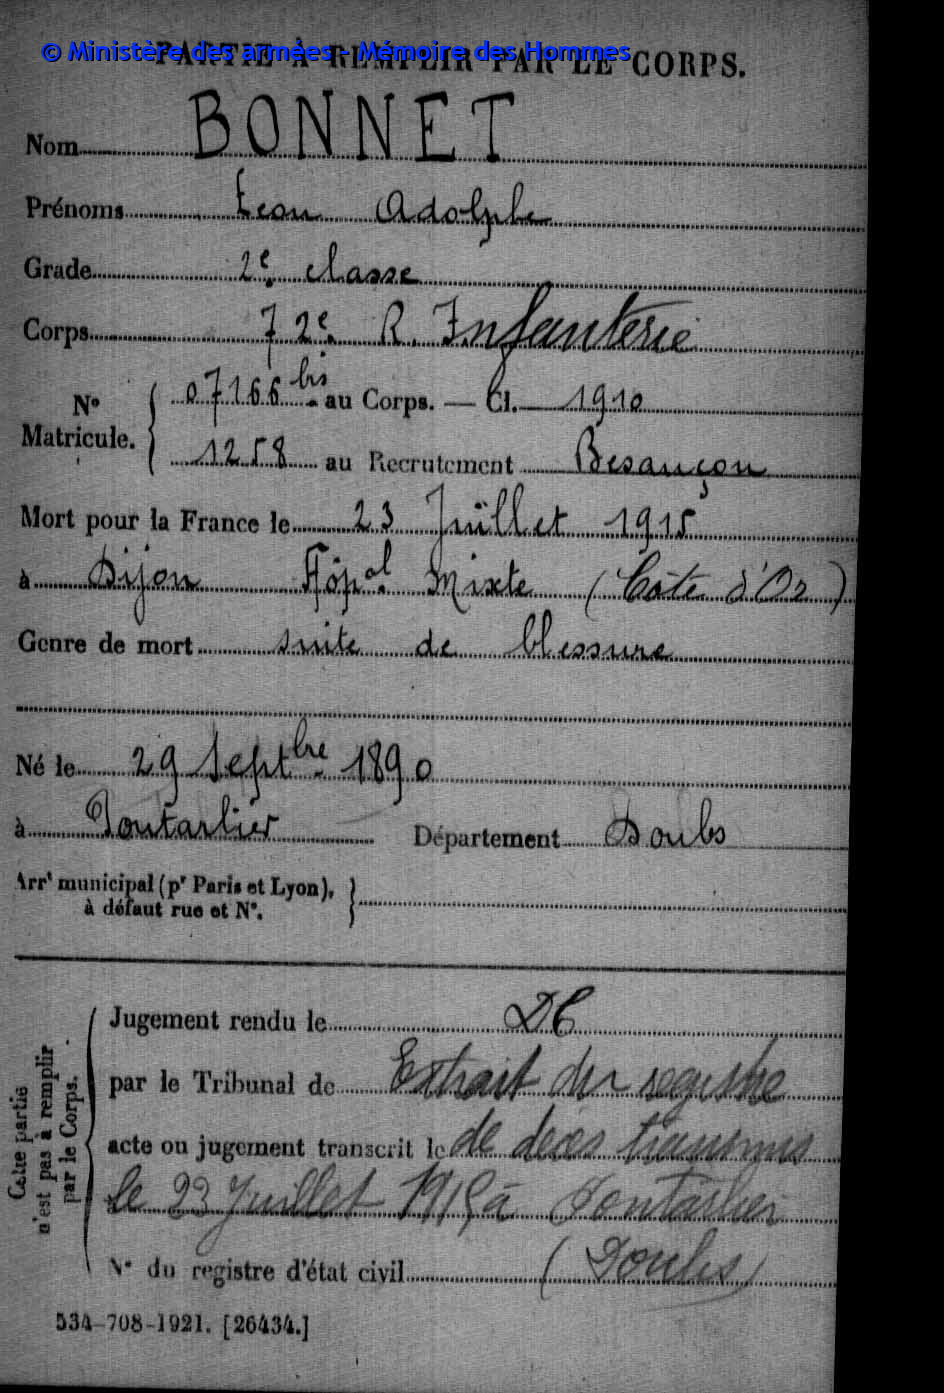 © Ministère des armées - Mémoire des Hommes
PARTIE À REMPLIR PAR LE CORPS.
Nom BONNET
Prénoms Léon Adolphe
Grade 2e classe
Corps 72e R. Infanterie
N° Matricule. { 07166 bis au Corps. — Cl. 1910
1258 au Recrutement Besançon
Mort pour la France le 23 Juillet 1915
à Dijon Hôpal Mixte (Côte d'Or)
Genre de mort suite de blessure
Né le 29 Septbre 1890
à Pontarlier Département Doubs
Arrt municipal (pr Paris et Lyon),
à défaut rue et N°. }
Cette partie
n'est pas à remplir
par le Corps.
Jugement rendu le DC
par le Tribunal de Extrait du registre
acte ou jugement transcrit le de décès transmis
le 23 Juillet 1915 à Pontarlier
N° du registre d'état civil (Doubs)
534-708-1921. [26434.]